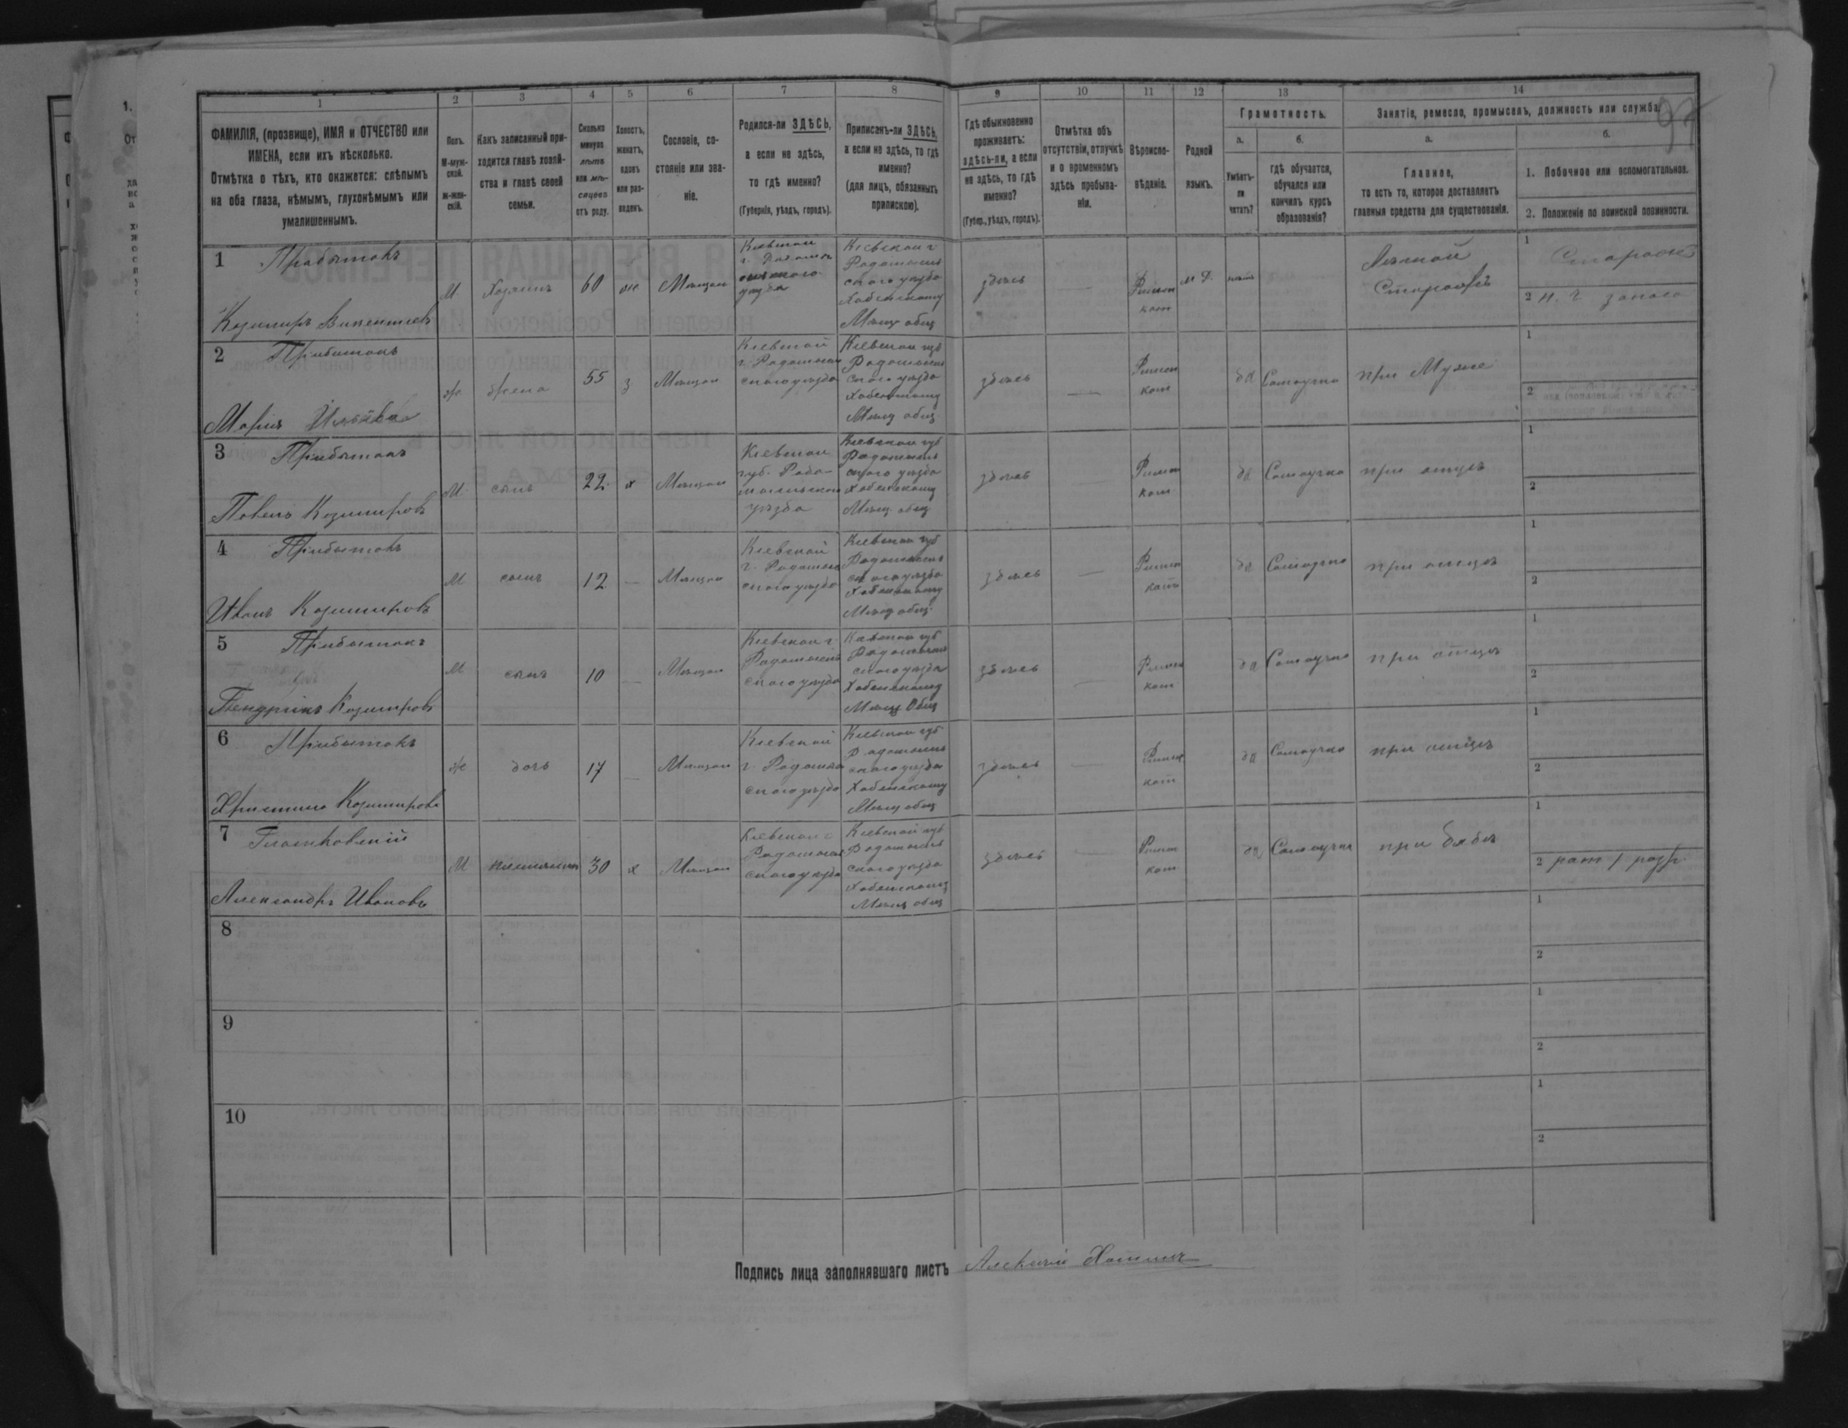 1
2
3
4
5
6
7
8
9
10
11
12
13
14
ФАМИЛІЯ, (прозвище), ИМЯ и ОТЧЕСТВО или
ИМЕНА, если ихъ нѣсколько.
Отмѣтка о тѣхъ, кто окажется: слѣпымъ
на оба глаза, нѣмымъ, глухонѣмымъ или
умалишеннымъ.
Полъ.
М-муж-
ской.
Ж-жен-
скій.
Какъ записанный при-
ходится главѣ хозяй-
ства и главѣ своей
семьи.
Сколько
минуло
лѣтъ
или мѣ-
сяцевъ
отъ роду.
Холостъ,
женатъ,
вдовъ
или раз-
веденъ.
Сословіе, со-
стояніе или зва-
ніе.
Родился-ли ЗДѢСЬ,
а если не здѣсь,
то гдѣ именно?
(Губернія, уѣздъ, городъ).
Приписанъ-ли ЗДѢСЬ,
а если не здѣсь, то гдѣ
именно?
(для лицъ, обязанныхъ
припискою).
Гдѣ обыкновенно
проживаетъ:
здѣсь-ли, а если
не здѣсь, то гдѣ
именно?
(Губер., уѣздъ, городъ).
Отмѣтка объ
отсутствіи, отлучкѣ
и о временномъ
здѣсь пребыва-
ніи.
Вѣроиспо-
вѣданіе.
Родной
языкъ.
Грамотность.
а.
Умѣетъ-
ли
читать?
б.
гдѣ обучается,
обучался или
кончилъ курсъ
образованія?
Занятіе, ремесло, промыселъ, должность или служба.
а.
Главное,
то есть то, которое доставляетъ
главныя средства для существованія.
б.
1. Побочное или вспомогательное.
2. Положеніе по воинской повинности.
1 Прибытокъ
Козимиръ Викентиевъ
М
Хозяинъ
60
ж
Мещан
Киевской
г. Радомы
сльского
уезда
Киевской г
Радомысль
ского уезда
Хабенскому
Мещ общ
здесь
Римск
кат
нет
Лесной
Сторожъ
1
2
2 Прибытокъ
Мария
ж
жена
55
з
Мещан
Киевской
г. Радомысл
ского уезда
Киевской губ
Радомысль
ского уезда
Хабенскому
Мещ общ
здесь
Римск
кат
да
Самоучка
при Муже
1
2
3 Прибытокъ
Павелъ Козимировъ
М
сынъ
22
х
Мещан
Киевской
губ. Радо
мысльского
уезда
Киевской губ
Радомысль
ского уезда
Хабенскому
Мещ общ
здесь
Римск
кат
да
Самоучка
при отце
1
2
4 Прибытокъ
Иванъ Козимировъ
М
сынъ
12
Мещан
Киевской
г. Радомысл
ского уезда
Киевской губ
Радомысль
ского уезда
Хабенскому
Мещ общ
здесь
Римск
кат
да
Самоучка
при отце
1
2
5 Прибытокъ
Гендрикъ Козимировъ
М
сынъ
10
Мещан
Киевской г.
Радомысль
ского уезда
Киевской губ
Радомысль
ского уезда
Хабенскому
Мещ Общ
здесь
Римск
кат
да
Самоучка
при отце
1
2
6 Прибытокъ
Христина Козимирова
ж
дочь
17
Мещан
Киевской
г. Радомысл
ского уезда
Киевской губ
Радомысль
ского уезда
Хабенскому
Мещ общ
здесь
Римск
кат
да
Самоучка
при отце
1
2
7
Александръ Ивановъ
М
племянникъ
30
х
Мещан
Киевской г
Радомысль
ского уезда
Киевской губ
Радомысль
ского уезда
Хабенскому
Мещ общ
здесь
Римск
кат
да
Самоучка
1
2 рат 1 разр
8
1
2
9
1
2
10
1
2
Подпись лица заполнявшаго листъ